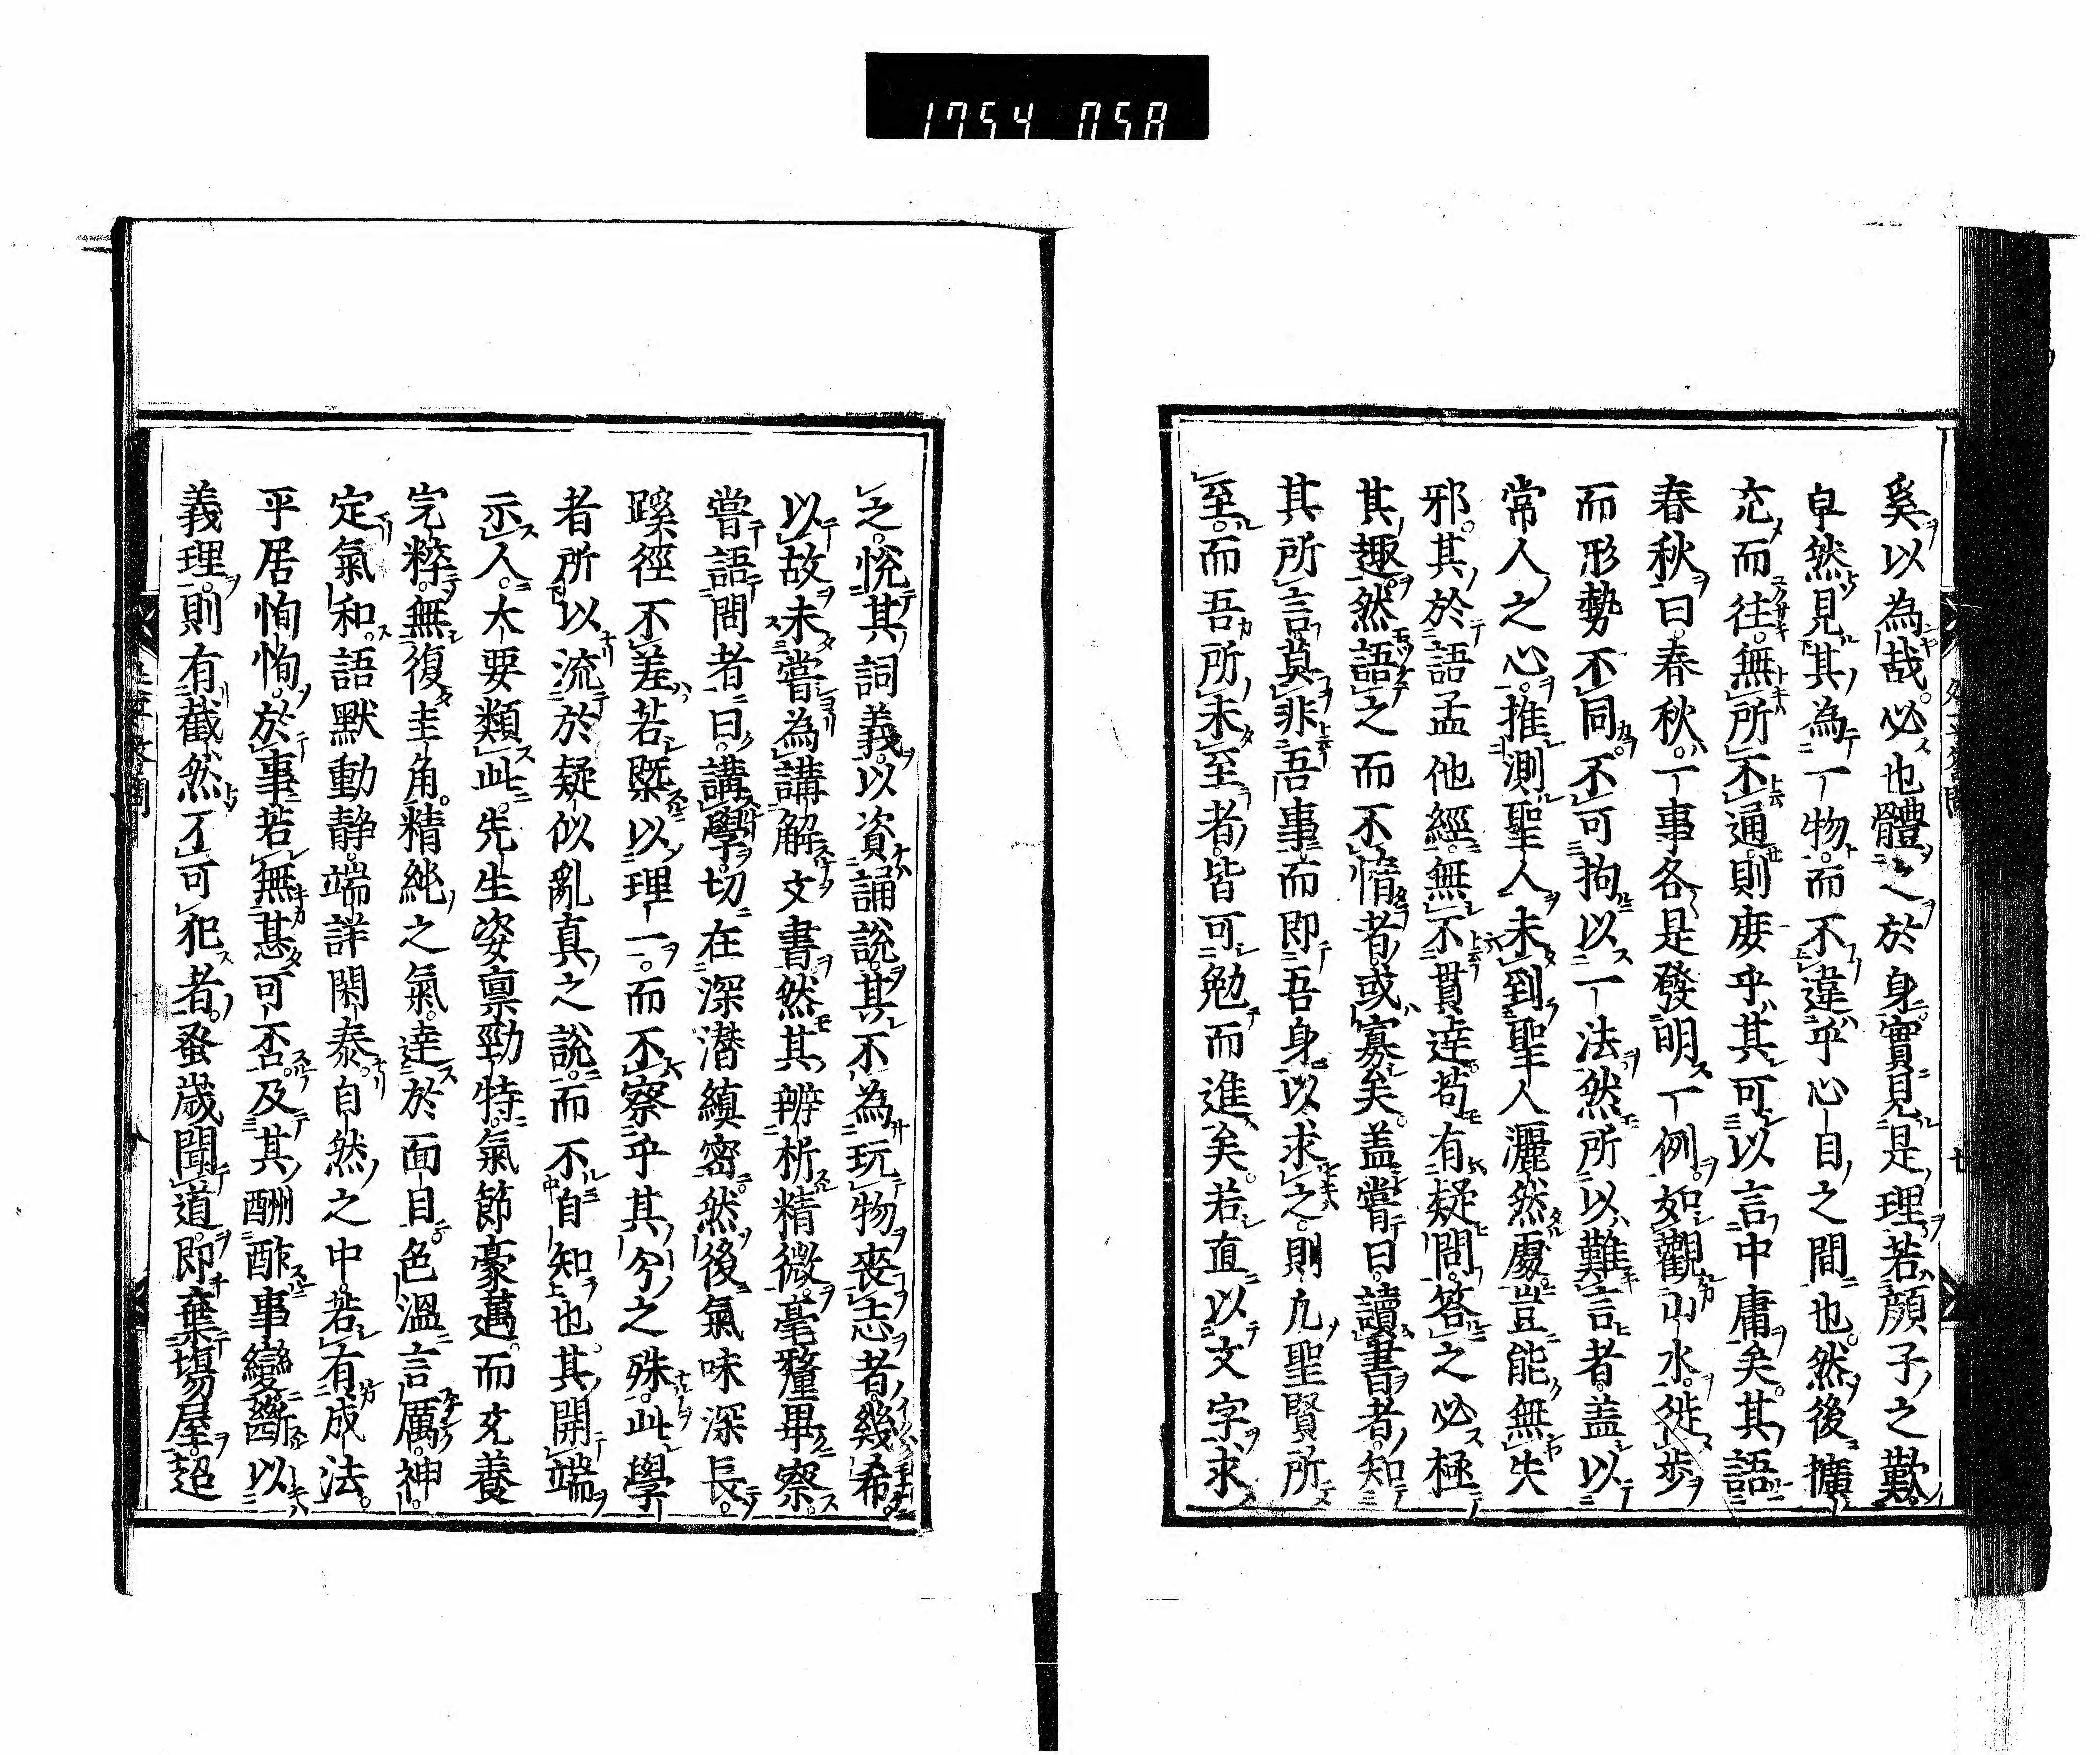 1754 058
奚以為哉必也體之於身實見是理若顔子之歎
卓然見其為一物而不違乎心目之間也然後擴
充而往無所不通則庶乎其可以言中庸矣其語
春秋曰春秋一事各是發明一例如觀山水徙步
而形勢不同不可拘以一法然所以難言者盖以
常人之心推測聖人未到聖人灑然處豈能無失
邪其於語孟他經無不貫達苟有疑問答之必極
其趣然語之而不惰者或寡矣盖嘗曰讀書者知
其所言莫非吾事而即吾身以求之則凢聖賢所
至而吾所未至者皆可勉而進矣若直以文字求
之悅其詞義以資誦說其不為玩物喪志者幾希
以故未嘗為講解文書然其辨析精微毫釐畢察
嘗語問者曰講學切在深潜縝密然後氣味深長
蹊徑不差若槩以理一而不察乎其分之殊此學
者所以流於疑似亂真之說而不自知也其開端
示人大要類此先生姿稟勁特氣節豪邁而充養
完粹無復圭角精純之氣達於面目色溫言厲神
定氣和語默動静端詳閑泰自然之中若有成法
平居恂恂於事若無甚可否及其酬酢事變斷以
義理則有截然不可犯者蚤歲聞道即棄塲屋超